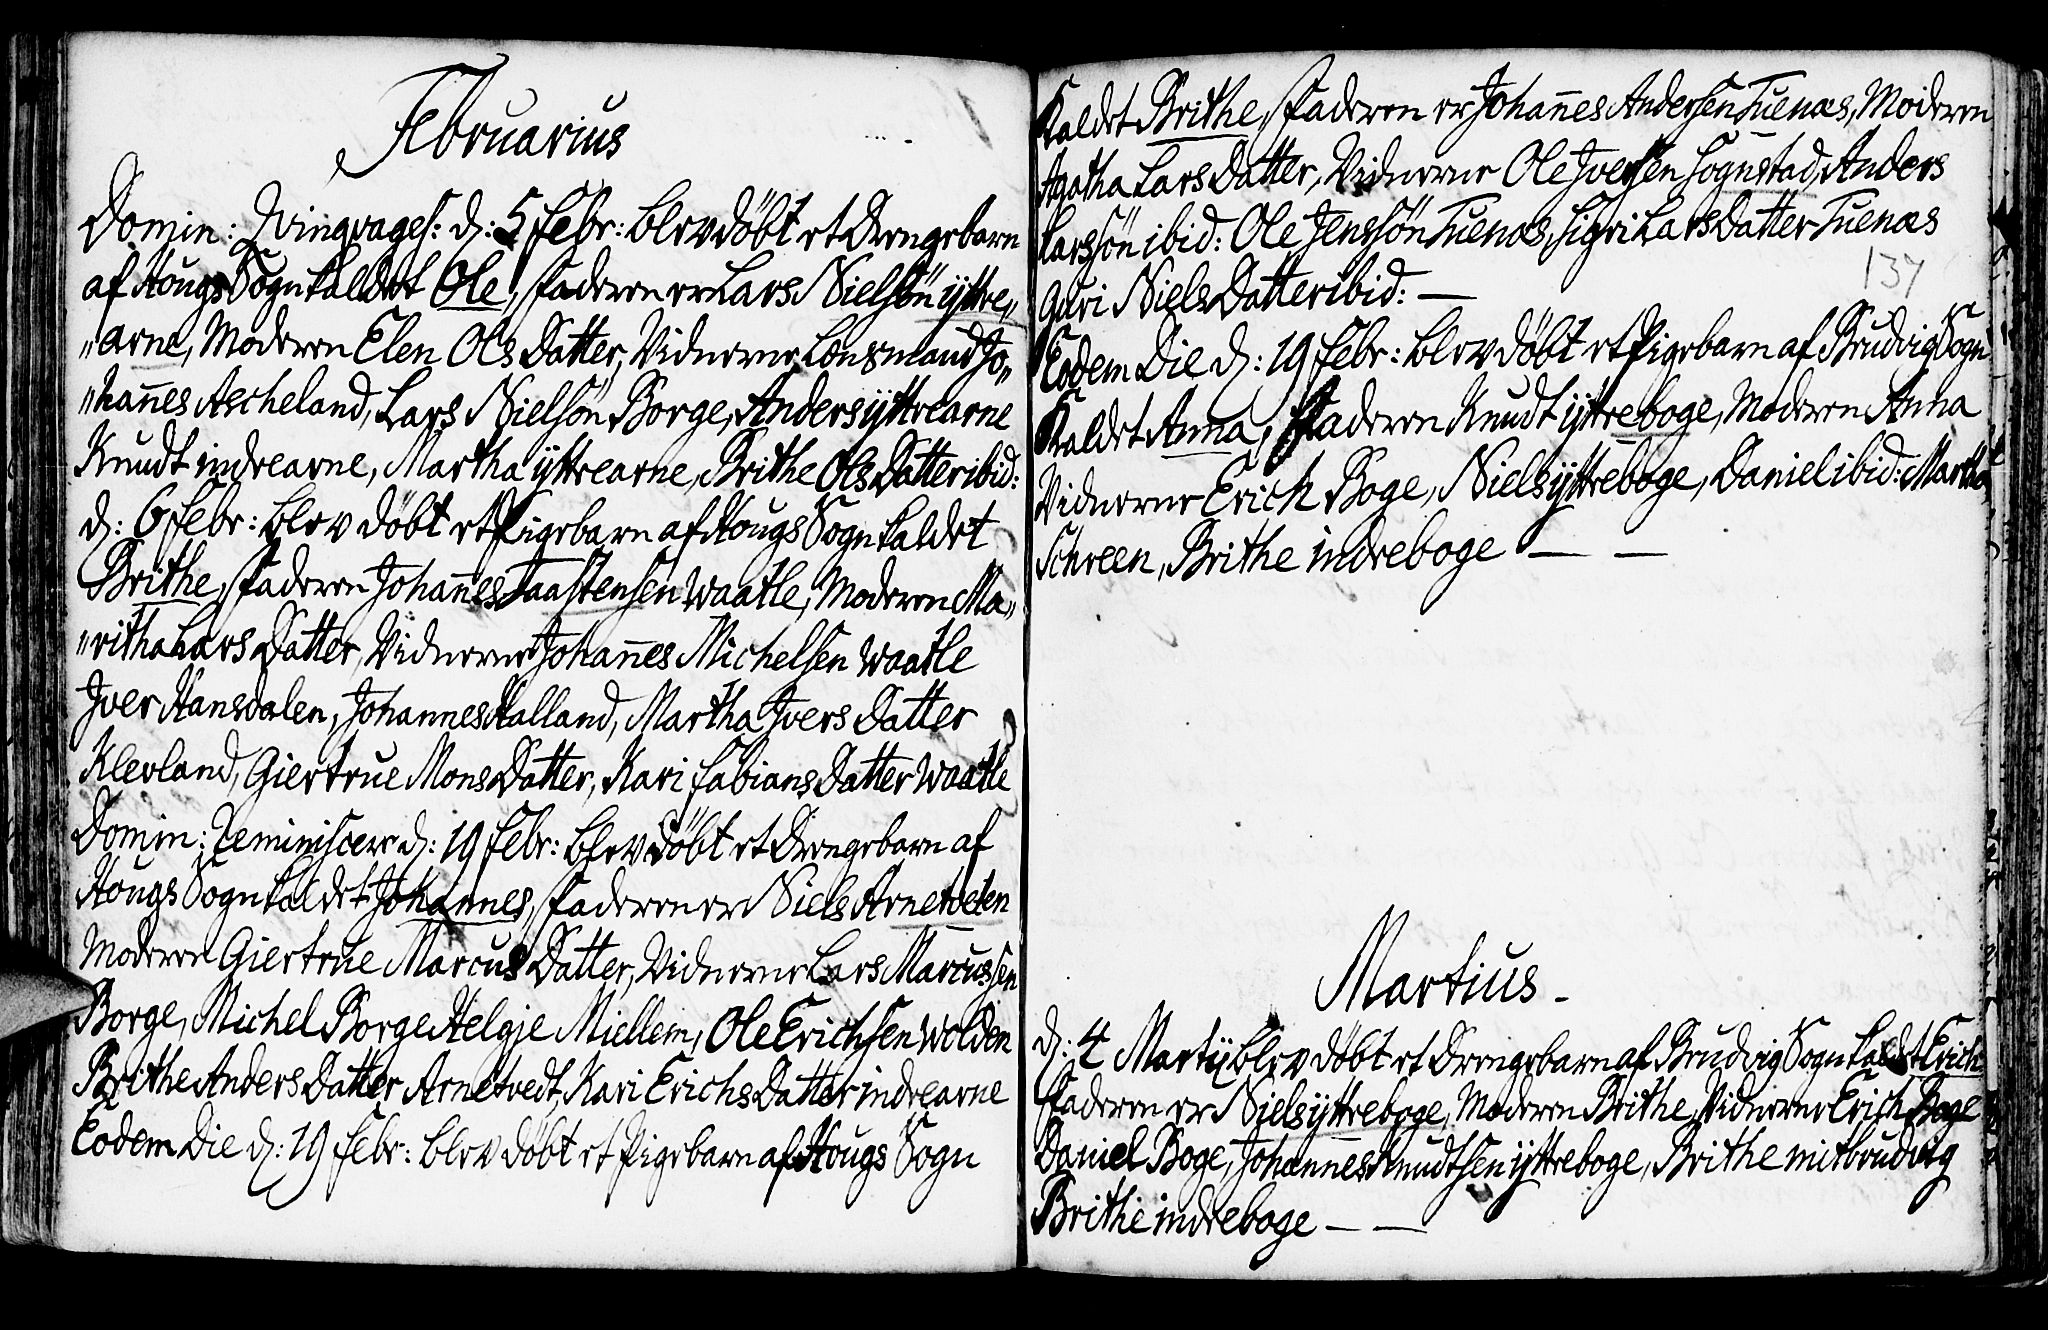 Februarius
Domin: Qvinqvages: d: 5 Febr: blev döbt et Drengebarn
af Hougs Sogn kaldet Ole, Faderen er Lars Nielsön ÿttre„
„arne, Moderen Elen Ols Datter, Vidnerne Lensmand Jo„
„han̄es Ascheland, Lars Nielsön Borge, Anders ÿttrearne
Knudt indrearne, Martha ÿttrearne, Brithe Ols Datter ibid:
d: 6 Febr: blev döbt et Pigebarn af Hougs Sogn kaldet
Brithe, Faderen Johan̄es Taastensen Waatle, Moderen Ma„
„ritha Lars Datter, Vidnerne Johan̄es Michelsen Waatle
Iver Hansdalen, Johannes Halland, Martha Ivers Datter
Klevland, Giertrue Mons Datter, Kari Fabians Datter Waatle
Domin: Reminiscere d: 19 Febr: blev döbt et Drengebarn af
Hougs Sogn kaldet Johannes, Faderen er Niels Arnetveten
Moderen Giertrue Marcus Datter, Vidnerne Lars Marcussen
Borge, Michel Borge Helgje Miellem, Ole Erichsen Wolden
Brithe Anders Datter Arnetvedt, Kari Erichs Datter indrearne
Eodem Die d: 19 Febr: blev döbt et Pigebarn af Hougs Sogn
kaldet Brithe, Faderen er Johan̄es Andersen Tuenæs, Moderen
Agatha Lars Datter, Vidnerne Ole Iversen Sognstad, Anders
Larssön ibid: Ole Jenssön Tuenæs, Sigri Lars Datter Tuenæs
137
Guri Niels Datter ibid: —
Eodem Die d: 19 Febr: blev döbt et Pigebarn af Brudvig Sogn
kaldet Anna, Faderen Knudt ÿttreboge, Moderen Anna
Vidnerne Erich Boge, Niels ÿttreboge, Daniel ibid: Martha
Schreen, Brithe indreboge — —
Martius -
d: 4 Martÿ blev döbt et Drengebarn af Brudvig Sogn kaldet Erich
Faderen er Niels ÿttreboge, Moderen Brithe, Vidnerne Erich Boge
Daniel Boge, Johan̄es Knudtsen ÿttreboge, Brithe mitbrudvig
Brithe indreboge — —